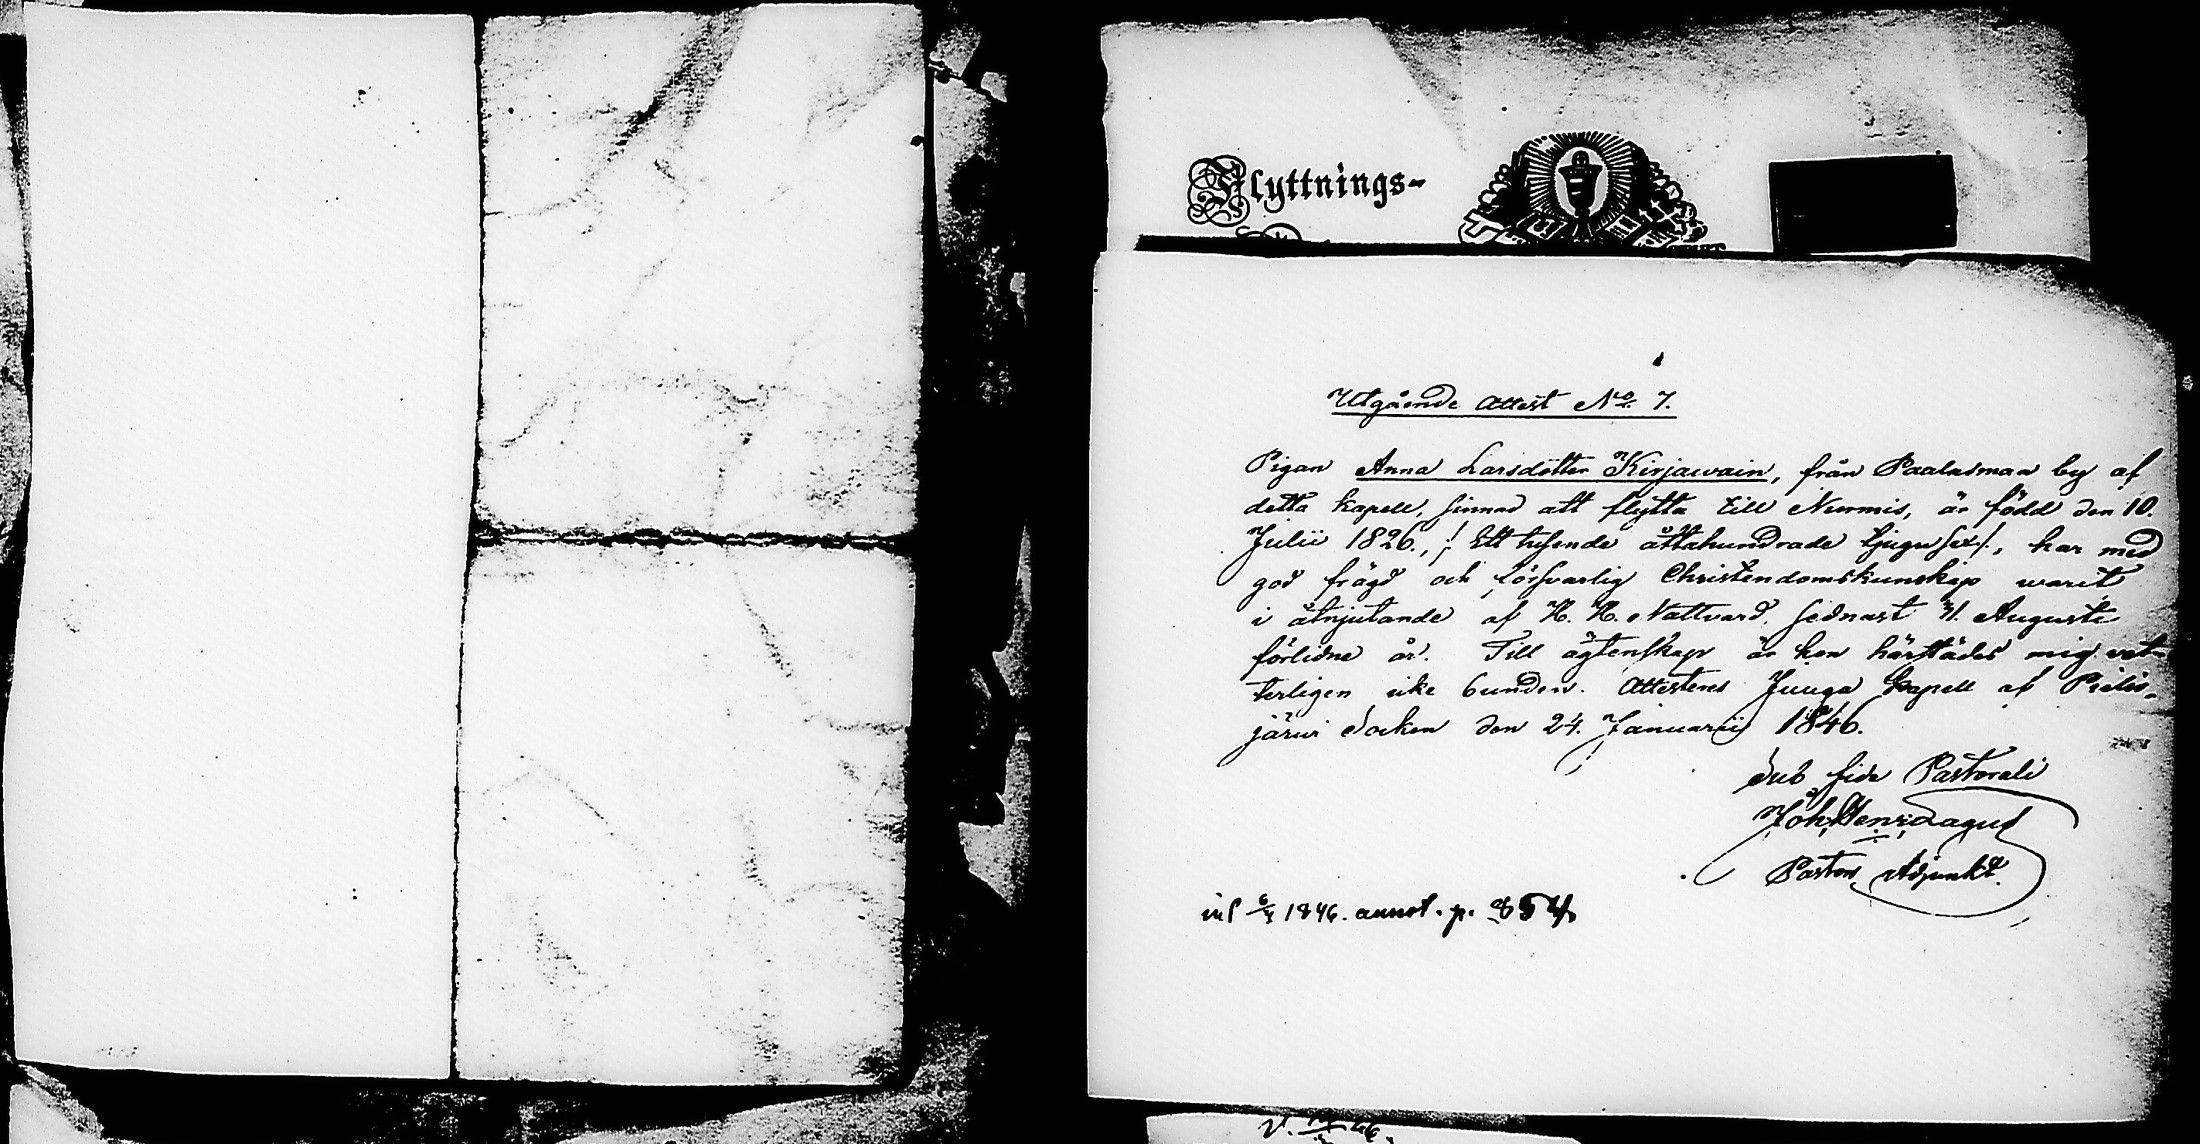 Flyttnings-
Utgående Attest No. 7.
Pigan Anna Larsdotter Kirjawain, från Paalasmaa by af
detta kapell, sinnad att flytta till Nurmis, är född den 10.
Julii 1826., /: Ett tusende åttahundrade tjugusex /:, har med
god frägd och försvarlig Christendomskunskap warit
i åtnjutande af H. H. Nattvard sednast Augusti
förlidne år. Till ägtenskap är hon härstädes mig vet-
terligen icke bunden. Attesteras Juuga kapell af Pielis-
järvi Socken den 24. Januarii 1846.
Sub fide Pastorali
Joh. Henr. Lagus
Pastors Adjunkt.
inl 1846. annot. p. 854